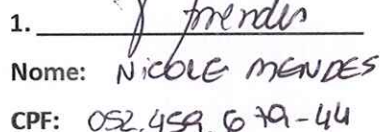 1. Mendes
Nome: NICOLE MENDES
CPF: 052.459.679-44